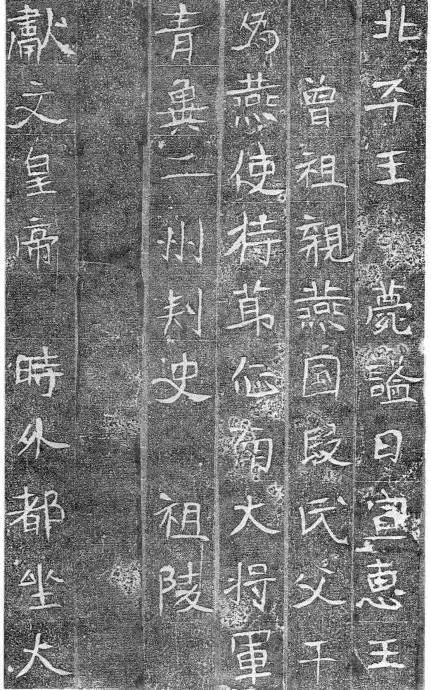 北平王　薨謚曰宣惠王
曾祖親燕国段氏父干
為燕使持節征南大将軍
青冀二州刺史　祖陵
獻文皇帝　時外都坐大